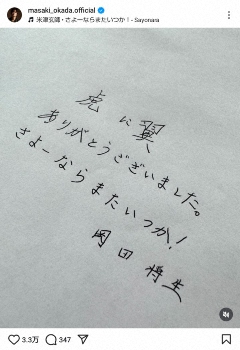 masaki_okada.official
米津玄師・さよーならまたいつか！ - Sayonara
虎に翼
ありがとうございました。
さよーならまたいつか！
岡田将生
3.3万
347